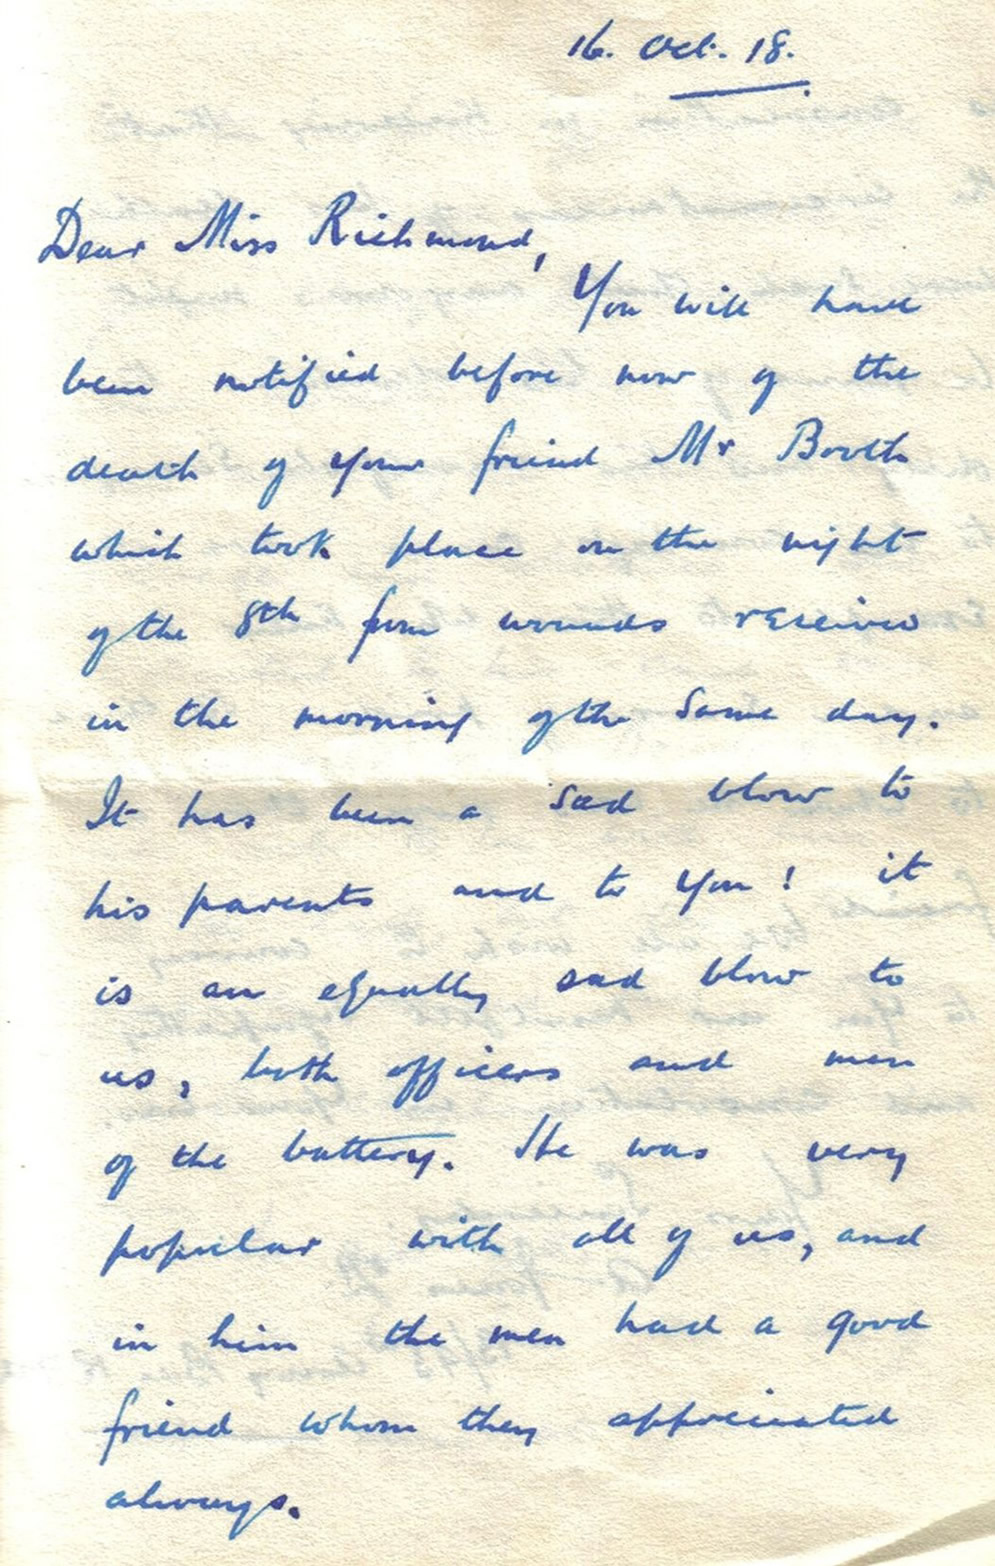 16. Oct. 18.
Dear Miss Richmond,
You will have
been notified before now of the
death of your friend Mr Booth
which took place on the night
of the 8th from wounds received
in the morning of the same day.
It has been a sad blow to
his parents and to you! it
is an equally sad blow to
us, both officers and men
of the battery. He was very
popular with all of us, and
in him the men had a good
friend whom they appreciated
always.